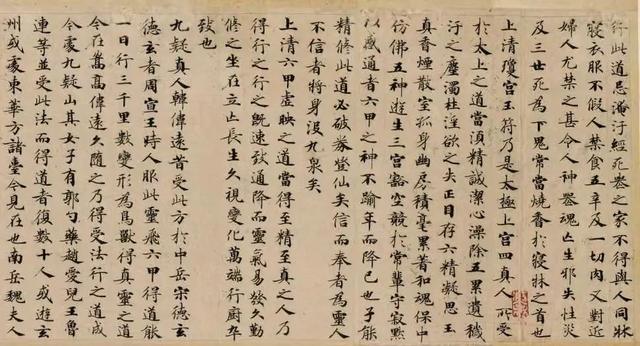 行此道忌淹汙經死喪之家不得與人同床
寢衣服不假人禁食五辛及一切肉又對近
婦人尤禁之甚令人神喪魂亡生邪失性災
及三世死為下鬼常當燒香於寢床之首也
上清瓊宮玉符乃是太極上宮四真人所受
於太上之道當須精誠潔心澡除五累遺穢
汙之塵濁杜淫欲之失正目存六精凝思玉
真香煙散室孤身幽房積毫累著和魂保中
仿佛五神遊生三宮豁空競於常輩守寂默
以感通者六甲之神不踰年而降已也子能
精修此道必破券登仙矣信而奉者為靈人
不信者將身沒九泉矣
上清六甲虛映之道當得至精至真之人乃
得行之行之既速致通降而靈氣易發久勤
修之坐在立亡長生久視變化萬端行廚卒
致也
九疑真人韓偉遠昔受此方於中岳宋德玄
德玄者周宣王時人服此靈飛六甲得道能
一日行三千里數變形為鳥獸得真靈之道
今在嵩高偉遠久隨之乃得受法行之道成
今處九疑山其女子有郭勺藥趙愛兒王魯
連等並受此法而得道者復數十人或遊玄
州或處東華方諸臺今見在也南岳魏夫人